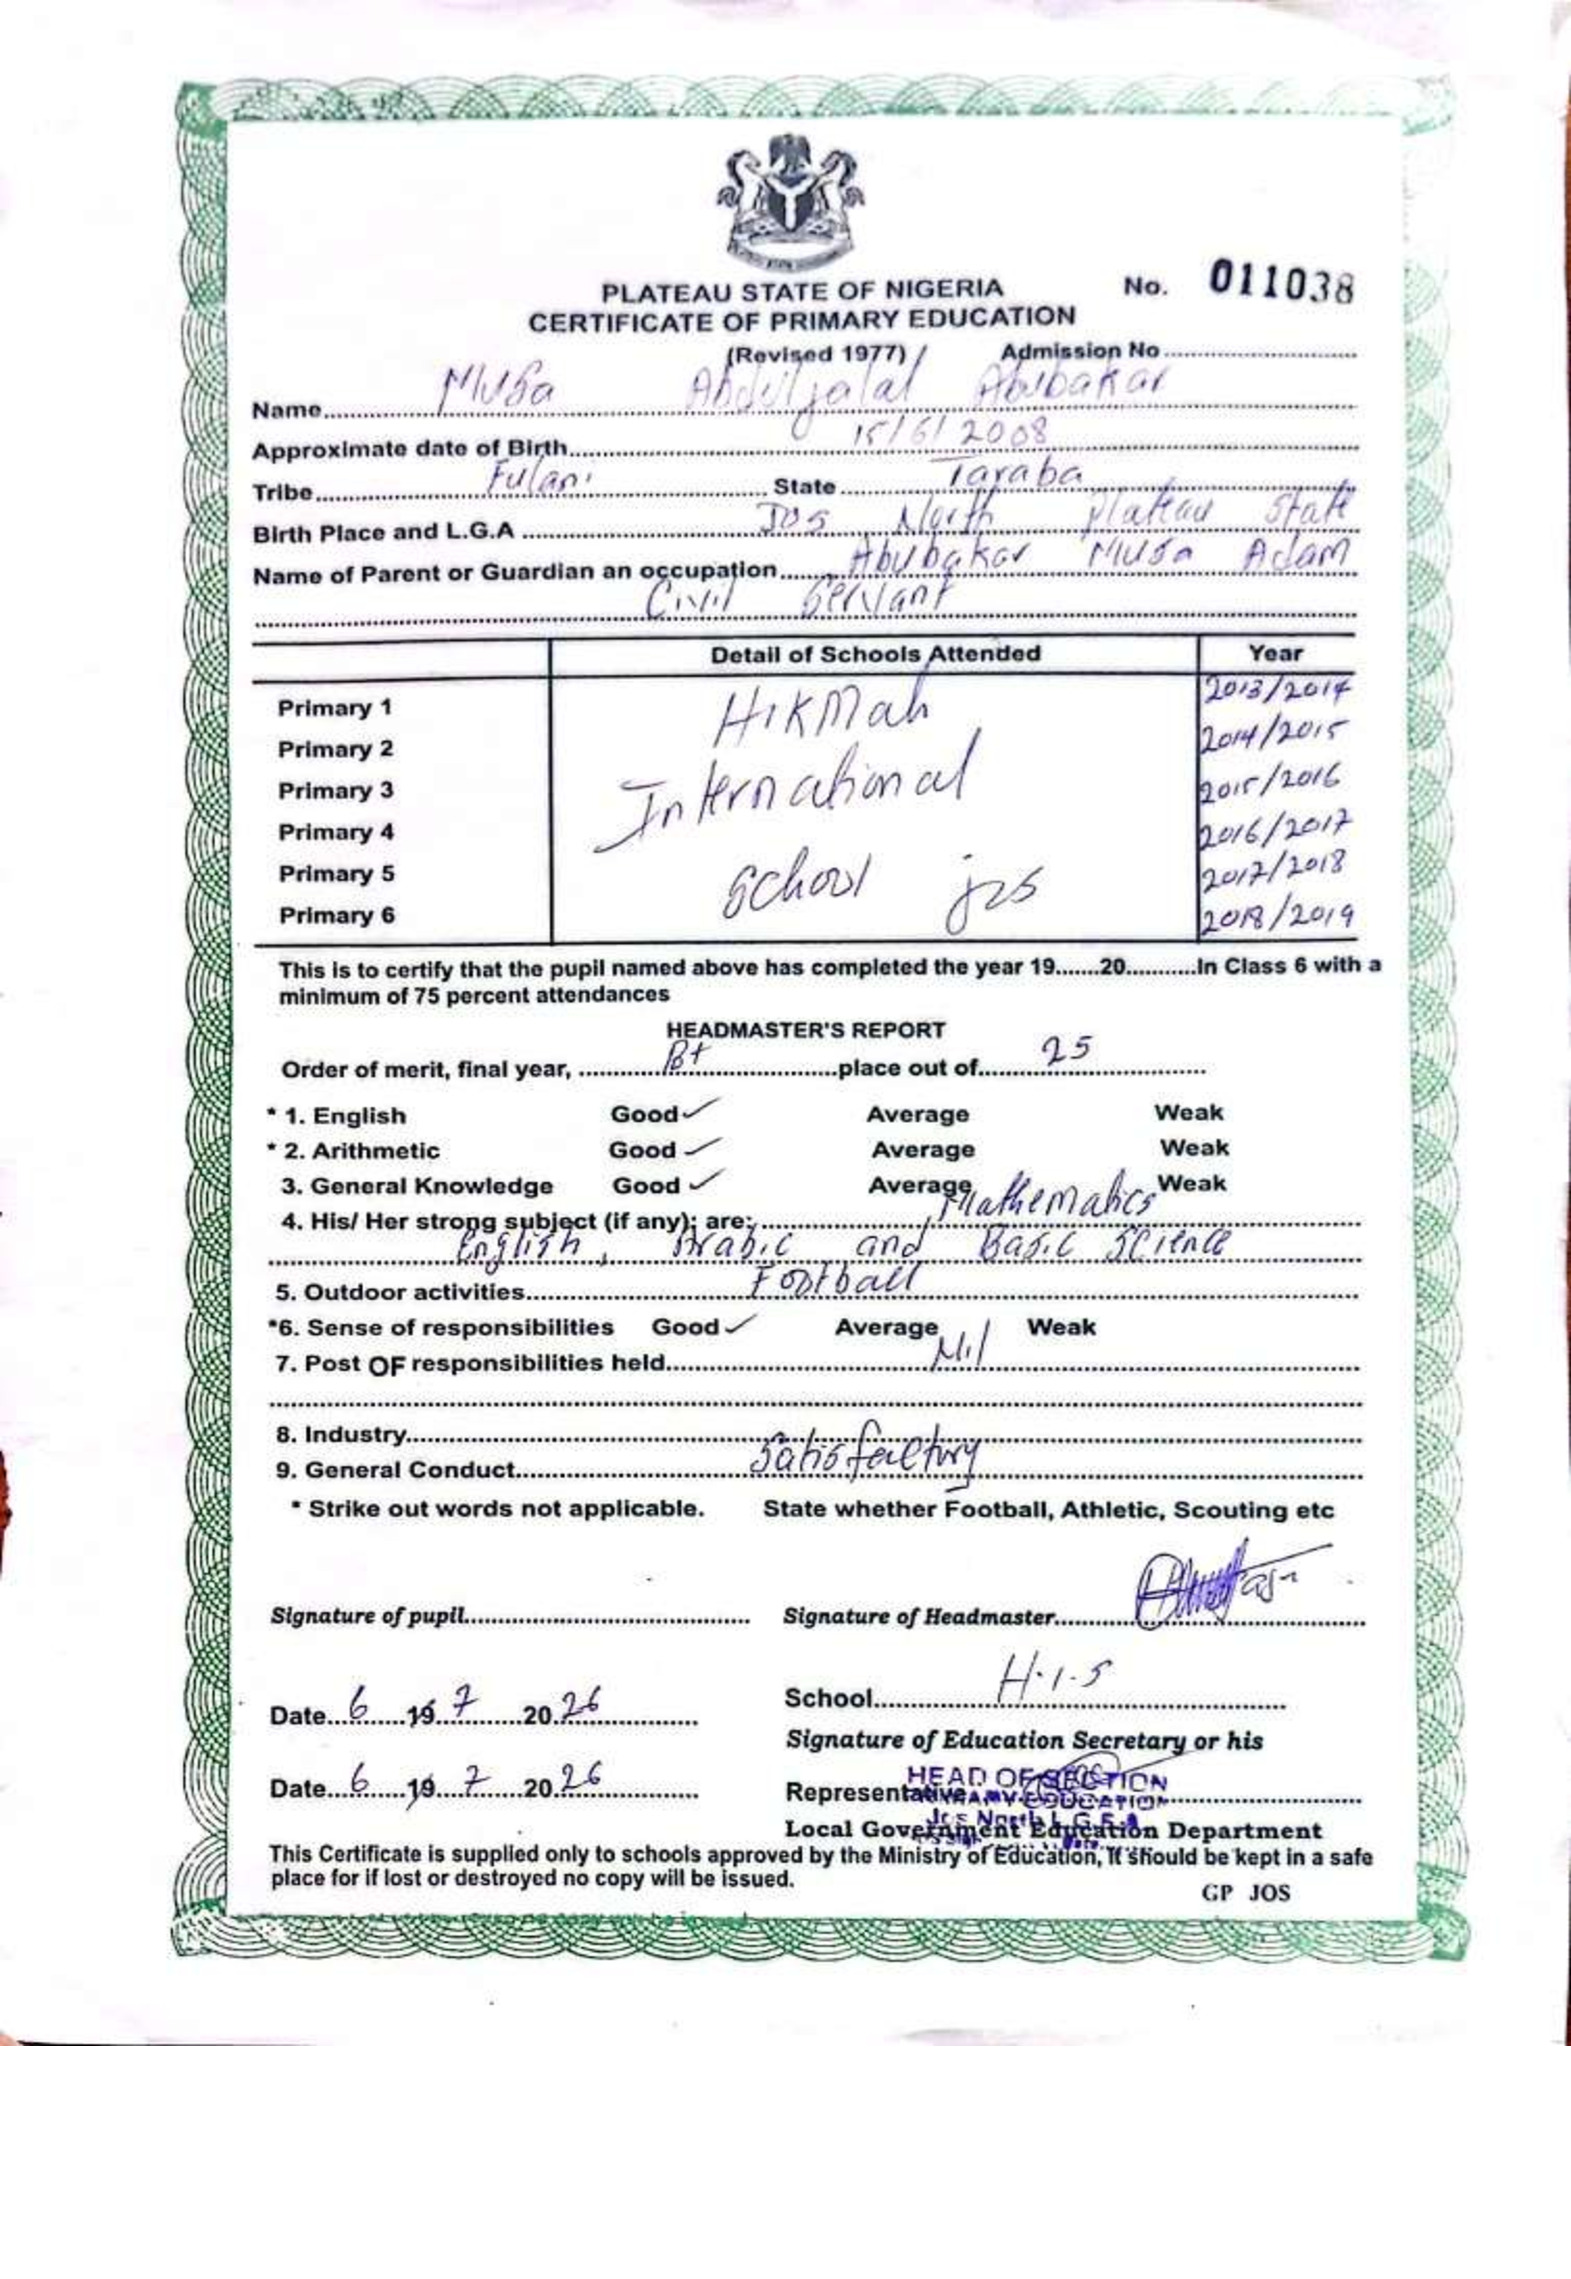 PLATEAU STATE OF NIGERIA
No. 011038
CERTIFICATE OF PRIMARY EDUCATION
(Revised 1977) / Admission No
Name Musa Abduljalal Abubakar
Approximate date of Birth 15/6/2008
Tribe Fulani State Taraba
Birth Place and L.G.A Jos North Plateau State
Name of Parent or Guardian an occupation Abubakar Musa Adam
Civil Servant
Detail of Schools Attended Year
Primary 1 Hikmah 2013/2014
Primary 2 2014/2015
Primary 3 International 2015/2016
Primary 4 2016/2017
Primary 5 School jos 2017/2018
Primary 6 2018/2019
This is to certify that the pupil named above has completed the year 19.......20...........In Class 6 with a
minimum of 75 percent attendances
HEADMASTER'S REPORT
Order of merit, final year, B+ place out of 25
* 1. English Good ✓ Average Weak
* 2. Arithmetic Good ✓ Average Weak
3. General Knowledge Good ✓ Average Weak
4. His/ Her strong subject (if any); are: Mathematics
English, Arabic and Basic Science
5. Outdoor activities Football
*6. Sense of responsibilities Good ✓ Average Weak
7. Post OF responsibilities held Nil
8. Industry
9. General Conduct Satisfactory
* Strike out words not applicable. State whether Football, Athletic, Scouting etc
Signature of pupil Signature of Headmaster
School H.I.S
Date 6 19 7 20 26
Signature of Education Secretary or his
Date 6 19 7 20 26
Representative
HEAD OF SECTION
EDUCATION
Jos North L.G.E.A
Local Government Education Department
This Certificate is supplied only to schools approved by the Ministry of Education, It should be kept in a safe
place for if lost or destroyed no copy will be issued.
GP JOS